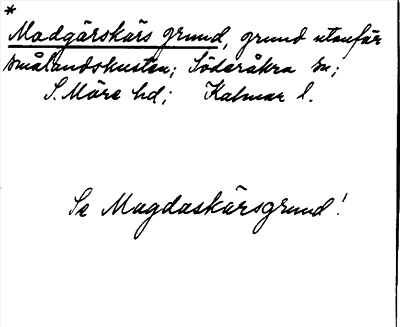 *
Madgärskärs grund, grund utanför
smålandskusten; Söderåkra sn;
S. Möre hd; Kalmar l.
Se Magdaskärsgrund!